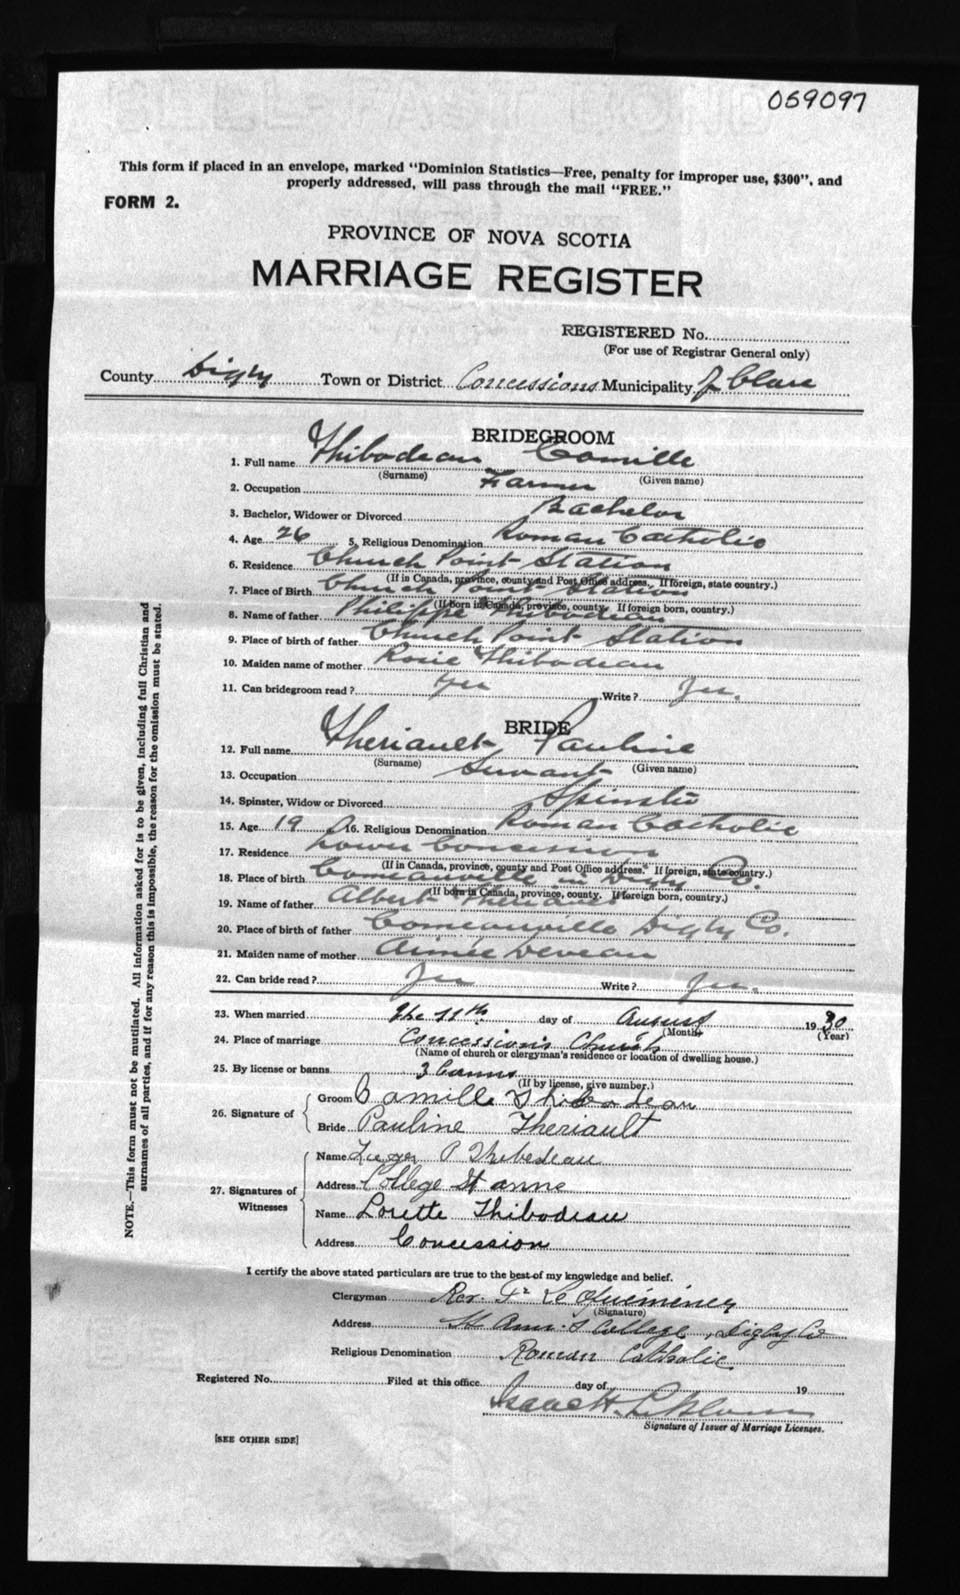 059097
This form if placed in an envelope, marked "Dominion Statistics—Free, penalty for improper use, $300", and
properly addressed, will pass through the mail "FREE."
FORM 2.
PROVINCE OF NOVA SCOTIA
MARRIAGE REGISTER
REGISTERED No.
(For use of Registrar General only)
County Digby Town or District Concessions Municipality Clare
BRIDEGROOM
1. Full name Thibodeau Camille
(Surname) (Given name)
2. Occupation Farmer
3. Bachelor, Widower or Divorced Bachelor
4. Age 26 5. Religious Denomination Roman Catholic
6. Residence Church Point Station
(If in Canada, province, county and Post Office address. If foreign, state country.)
7. Place of Birth Church Point Station
(If born in Canada, province, county. If foreign born, country.)
8. Name of father Philippe Thibodeau
9. Place of birth of father Church Point Station
10. Maiden name of mother Rosie Thibodeau
11. Can bridegroom read? Yes Write? Yes.
BRIDE
12. Full name Theriault Pauline
(Surname) (Given name)
13. Occupation Servant
14. Spinster, Widow or Divorced Spinster
15. Age 19 16. Religious Denomination Roman Catholic
17. Residence Lower Concession
(If in Canada, province, county and Post Office address. If foreign, state country.)
18. Place of birth Comeauville in Digby Co.
(If born in Canada, province, county. If foreign born, country.)
19. Name of father Albert Theriault
20. Place of birth of father Comeauville Digby Co.
21. Maiden name of mother Aimée Deveau
22. Can bride read? Yes Write? Yes.
23. When married The 11th day of August 1930
(Month) (Year)
24. Place of marriage Concessions Church
(Name of church or clergyman's residence or location of dwelling house.)
25. By license or banns 3 banns
(If by license, give number.)
26. Signature of
Groom Camille Thibodeau
Bride Pauline Theriault
27. Signatures of Witnesses
Name P Thibedeau
Address College St anne
Name Lorette Thibodeau
Address Concession
I certify the above stated particulars are true to the best of my knowledge and belief.
Clergyman Rev. Le Quemener
(Signature)
Address St Ann's College, Digby Co
Religious Denomination Roman Catholic
Registered No. Filed at this office day of 19
Isaac H.
Signature of Issuer of Marriage Licenses.
[SEE OTHER SIDE]
NOTE.—This form must not be mutilated. All information asked for is to be given, including full Christian and
surnames of all parties, and if for any reason this is impossible, the reason for the omission must be stated.